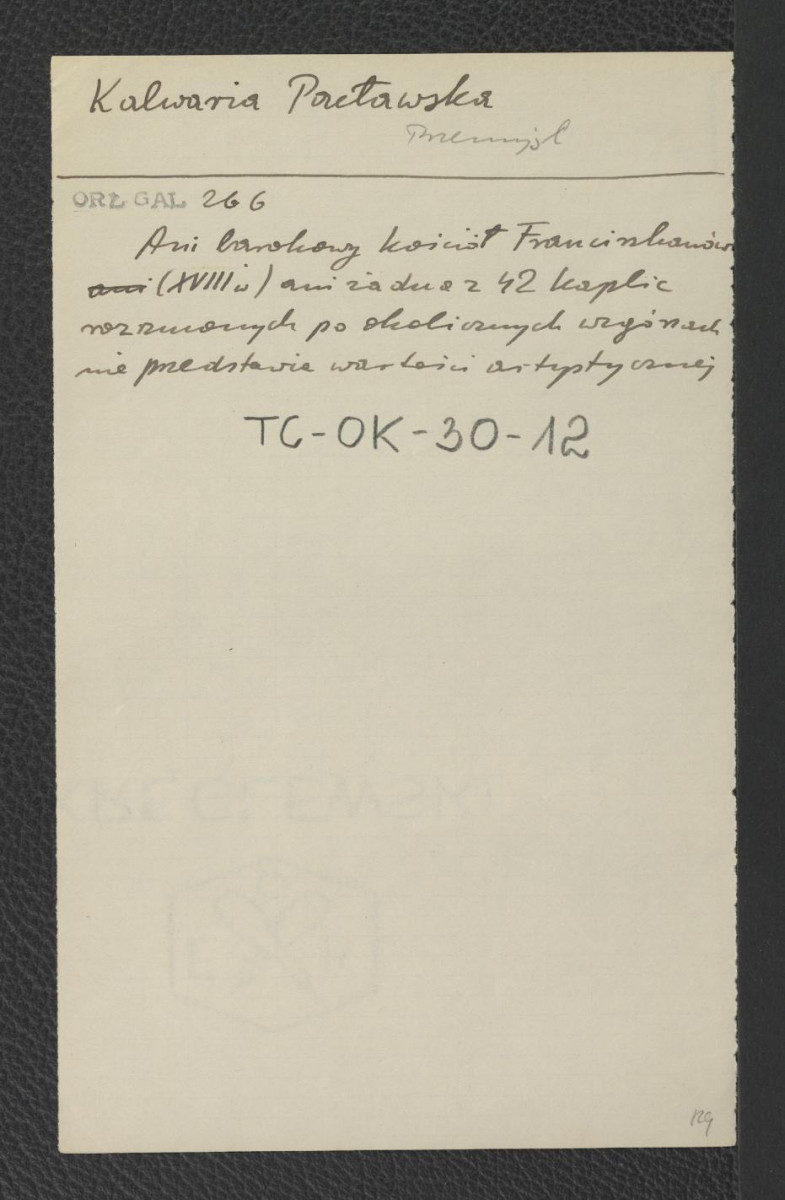 Kalwaria Pacławska
Przemyśl
ORŁ GAL 266
Ani barokowy kościół Franciszkanów
ani (XVIII w) ani żadna z 42 kaplic
rozrzuconych po okolicznych wzgórzach
nie przedstawia wartości artystycznej
TC-OK-30-12
129